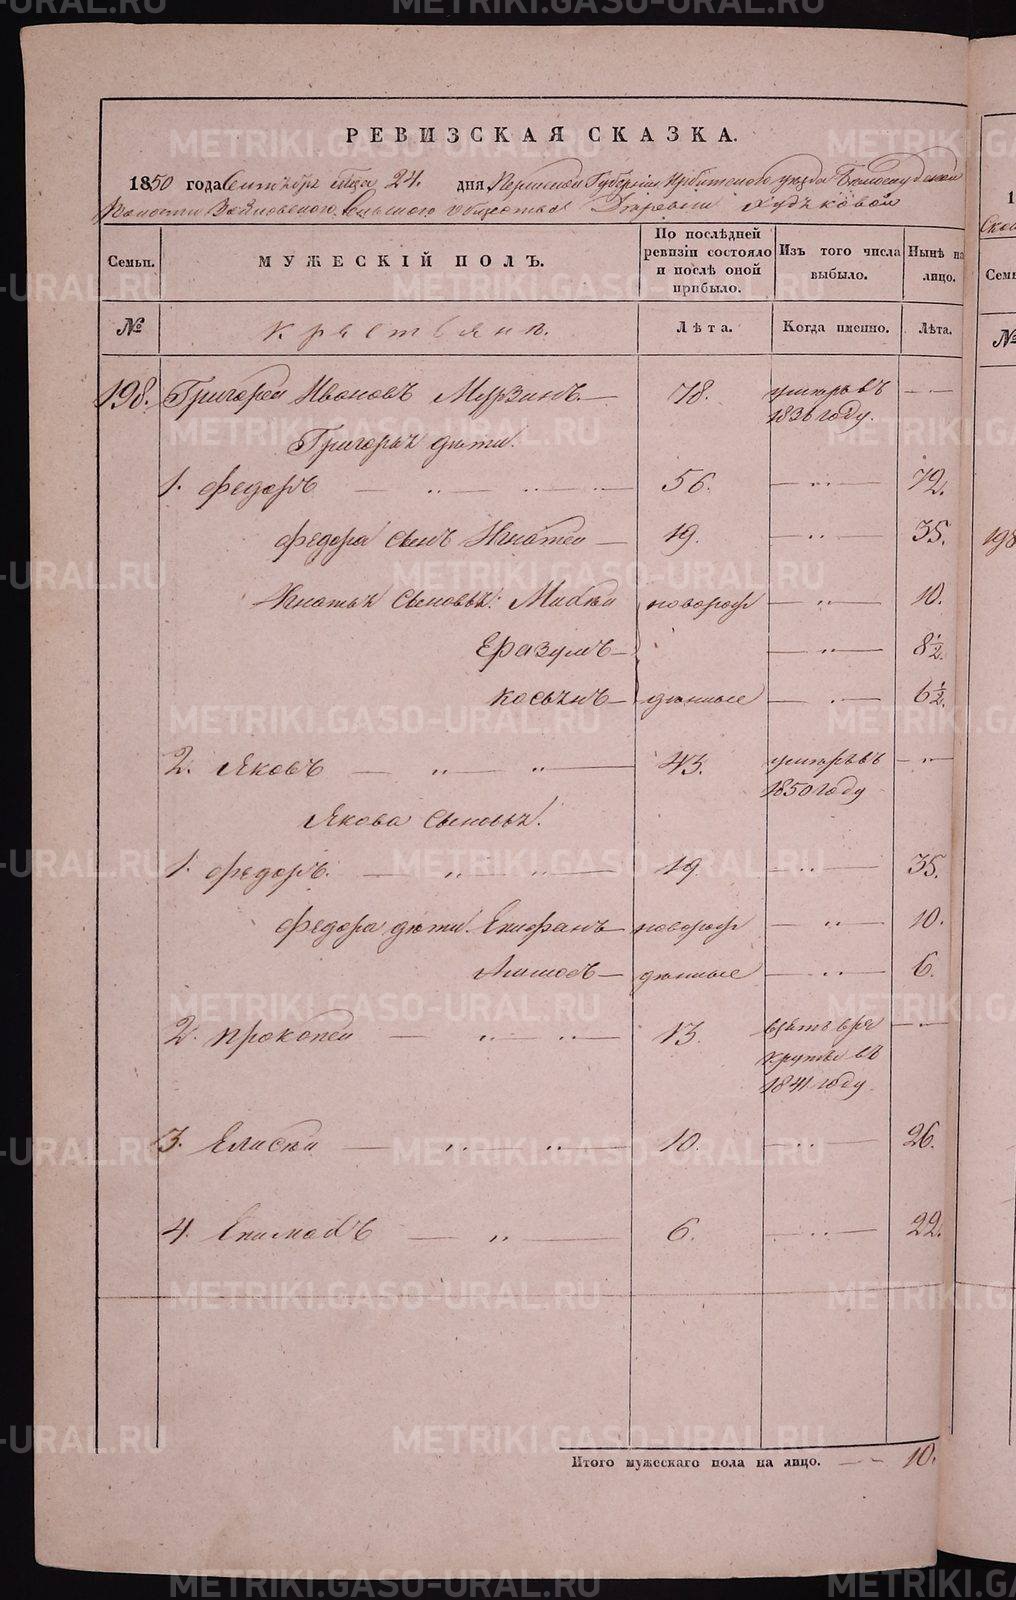 РЕВИЗСКАЯ СКАЗКА.
1850 года Сентября м҃ца 24. дня Пермской Губернии Ирбитского уезда
Волости сельского общества Деревни Худяковой
Семьи. МУЖЕСКІЙ ПОЛЪ. По послѣдней ревизіи состояло и послѣ оной прибыло. Изъ того числа выбыло. Нынѣ на лицо.
№ Крестьяне. Лѣта. Когда именно. Лѣта.
198. Григорей Ивановъ Мурзинъ — 78. умеръ въ 1836 году. — —
Григорья дети:
1. Федоръ — „ — „ — 56. — „ — 72.
Федора сынъ Игнатей — 19. — „ — 35.
Игнатья сыновья: Матвѣй новорож — „ — 10.
Еразумъ — — „ — 8½.
Косьянъ — денные — „ — 6½.
2. Яковъ — „ — „ — 43. умеръ въ 1850 году — „ —
Якова сыновья:
1. Федоръ. — „ — „ — 19. — „ — 35.
Федора дети: Епифанъ — новорож — „ — 10.
— денные — „ — 6.
2. Прокопей — „ — „ — 13. взятъ в рекруты въ 1841 году. — „ —
3. Елисѣй — „ — „ — 10. — „ — 26.
4. — „ — 6. — „ — 22.
Итого мужескаго пола на лицо. — — 10.
198
METRIKI.GASO-URAL.RU